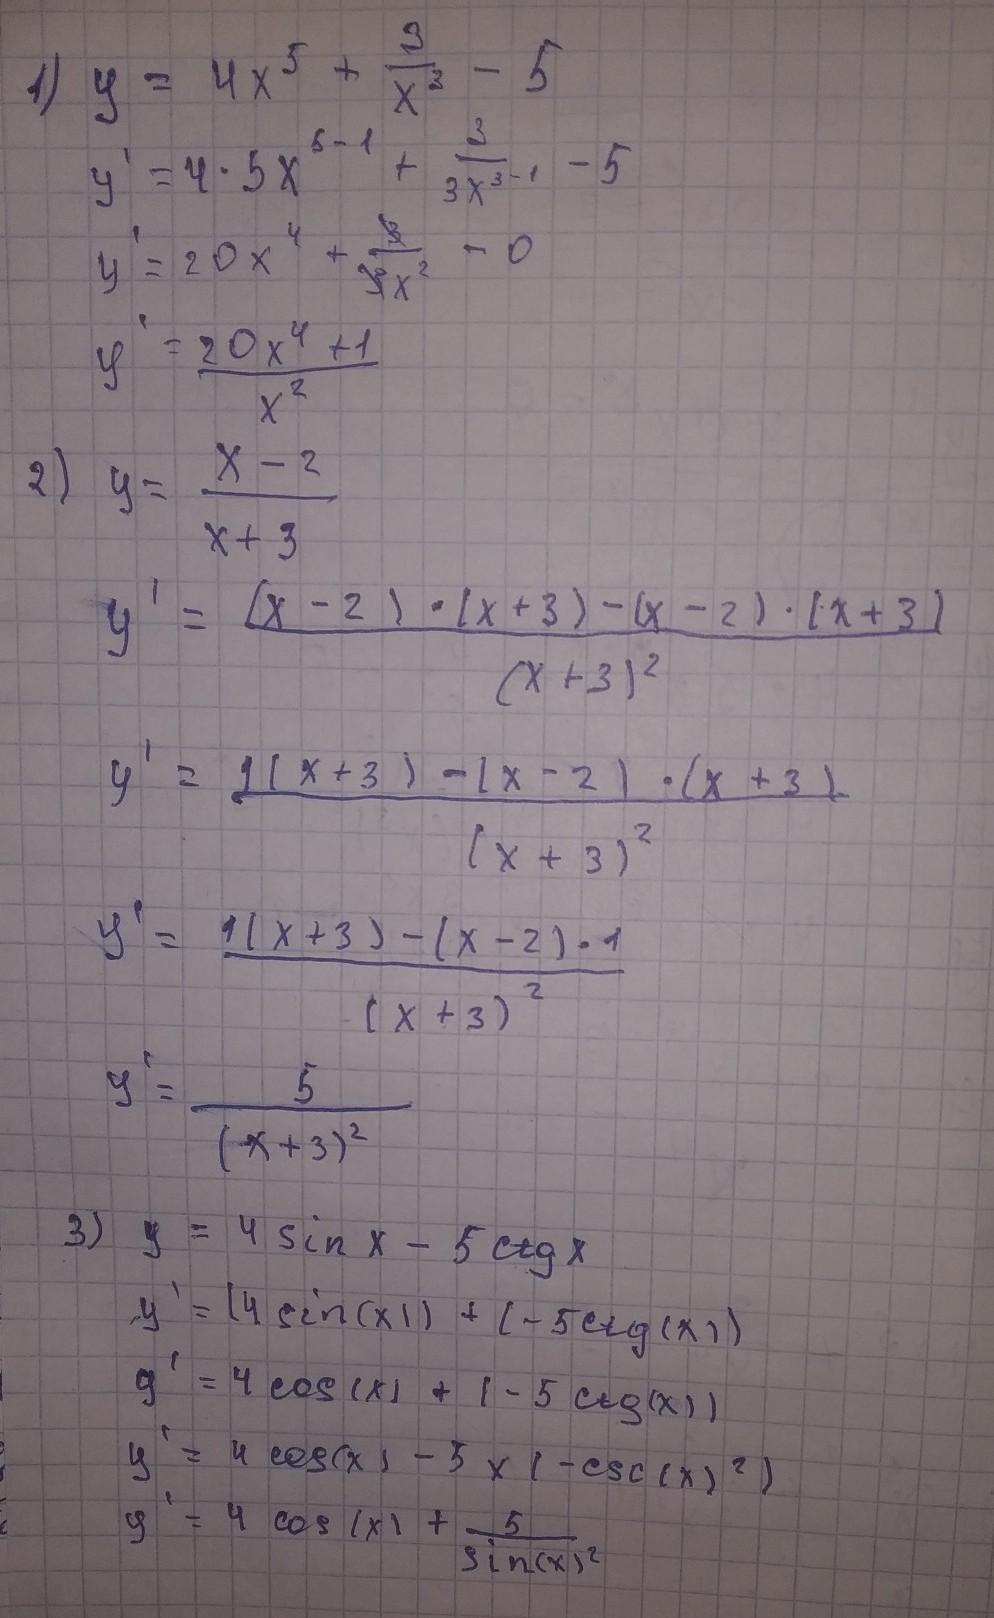 1) y = 4x⁵ + 3/x³ - 5
y' = 4·5x⁵⁻¹ + 3/3x³⁻¹ - 5
y' = 20x⁴ + 3/3x² - 0
y' = 20x⁴+1/x²
2) y = x-2/x+3
y' = (x-2)·(x+3)-(x-2)·(x+3)/(x+3)²
y' = 1(x+3)-(x-2)·(x+3)/(x+3)²
y' = 1(x+3)-(x-2)·1/(x+3)²
y' = 5/(x+3)²
3) y = 4 sin x - 5 ctg x
y' = (4 sin(x)) + (-5ctg(x))
y' = 4 cos(x) + (-5 ctg(x))
y' = 4 cos(x) - 5 x (-csc(x)²)
y' = 4 cos(x) + 5/sin(x)²